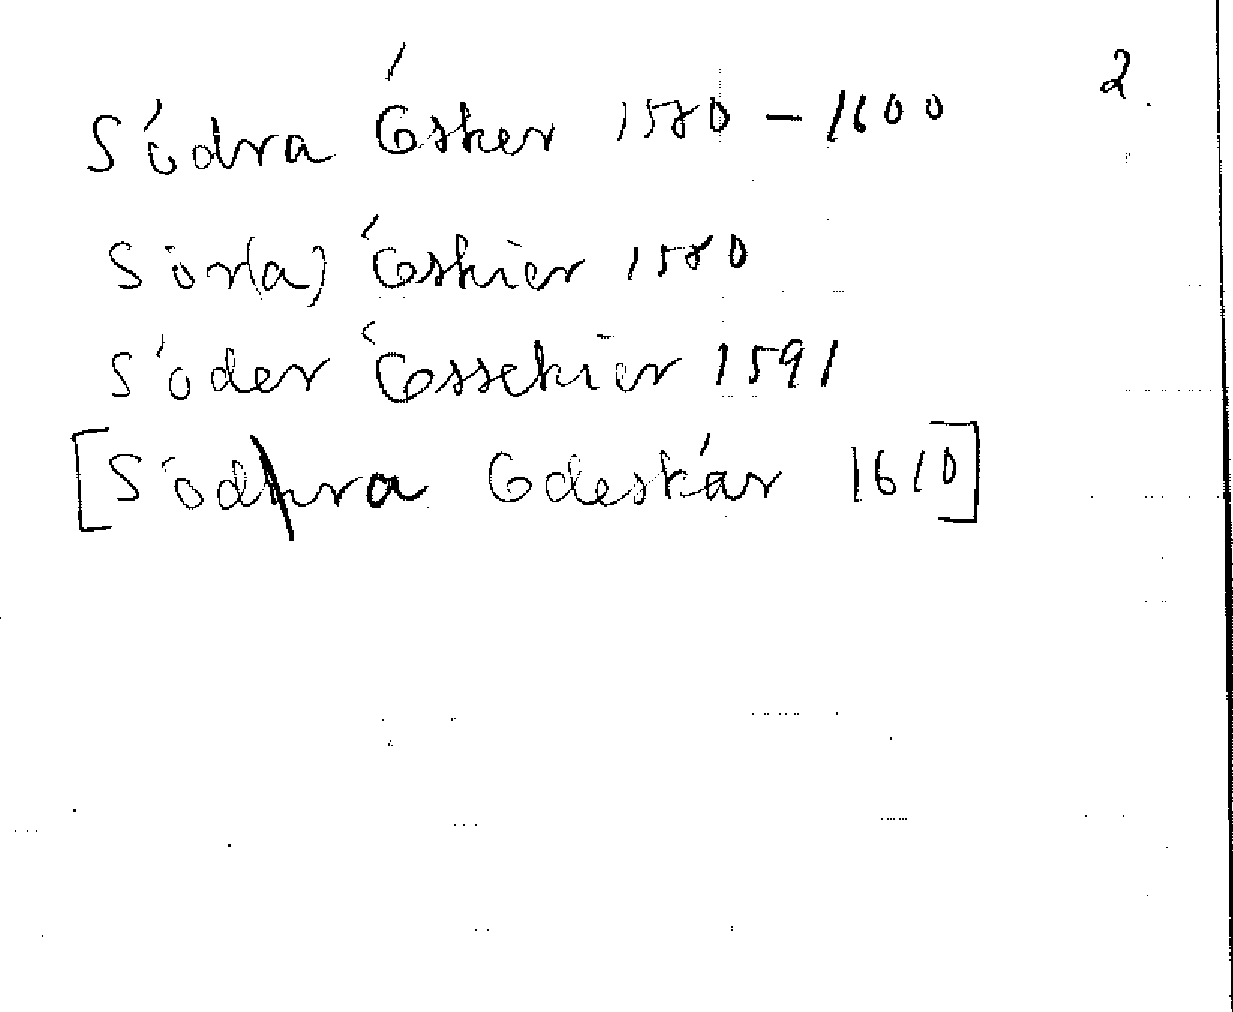 2.
Södra Ósker 1580 – 1600
Sör(a) Óskier 1580
Söder Óssekier 1591
[Södhra Odeskár 1610]